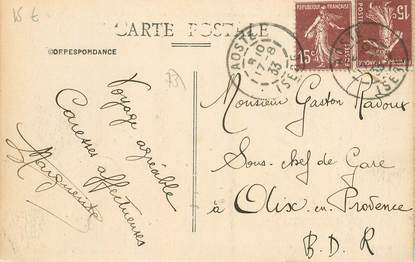 15 €
CARTE POSTALE
CORRESPONDANCE
Voyage agréable
Caresses affectueuses
Marguerite
AOSTE
8 10
17-8
33
ISERE
REPUBLIQUE FRANÇAISE
15c
POSTES
15c
Monsieur Gaston Radoux
Sous-chef de Gare
à Aix-en-Provence
B.D.R